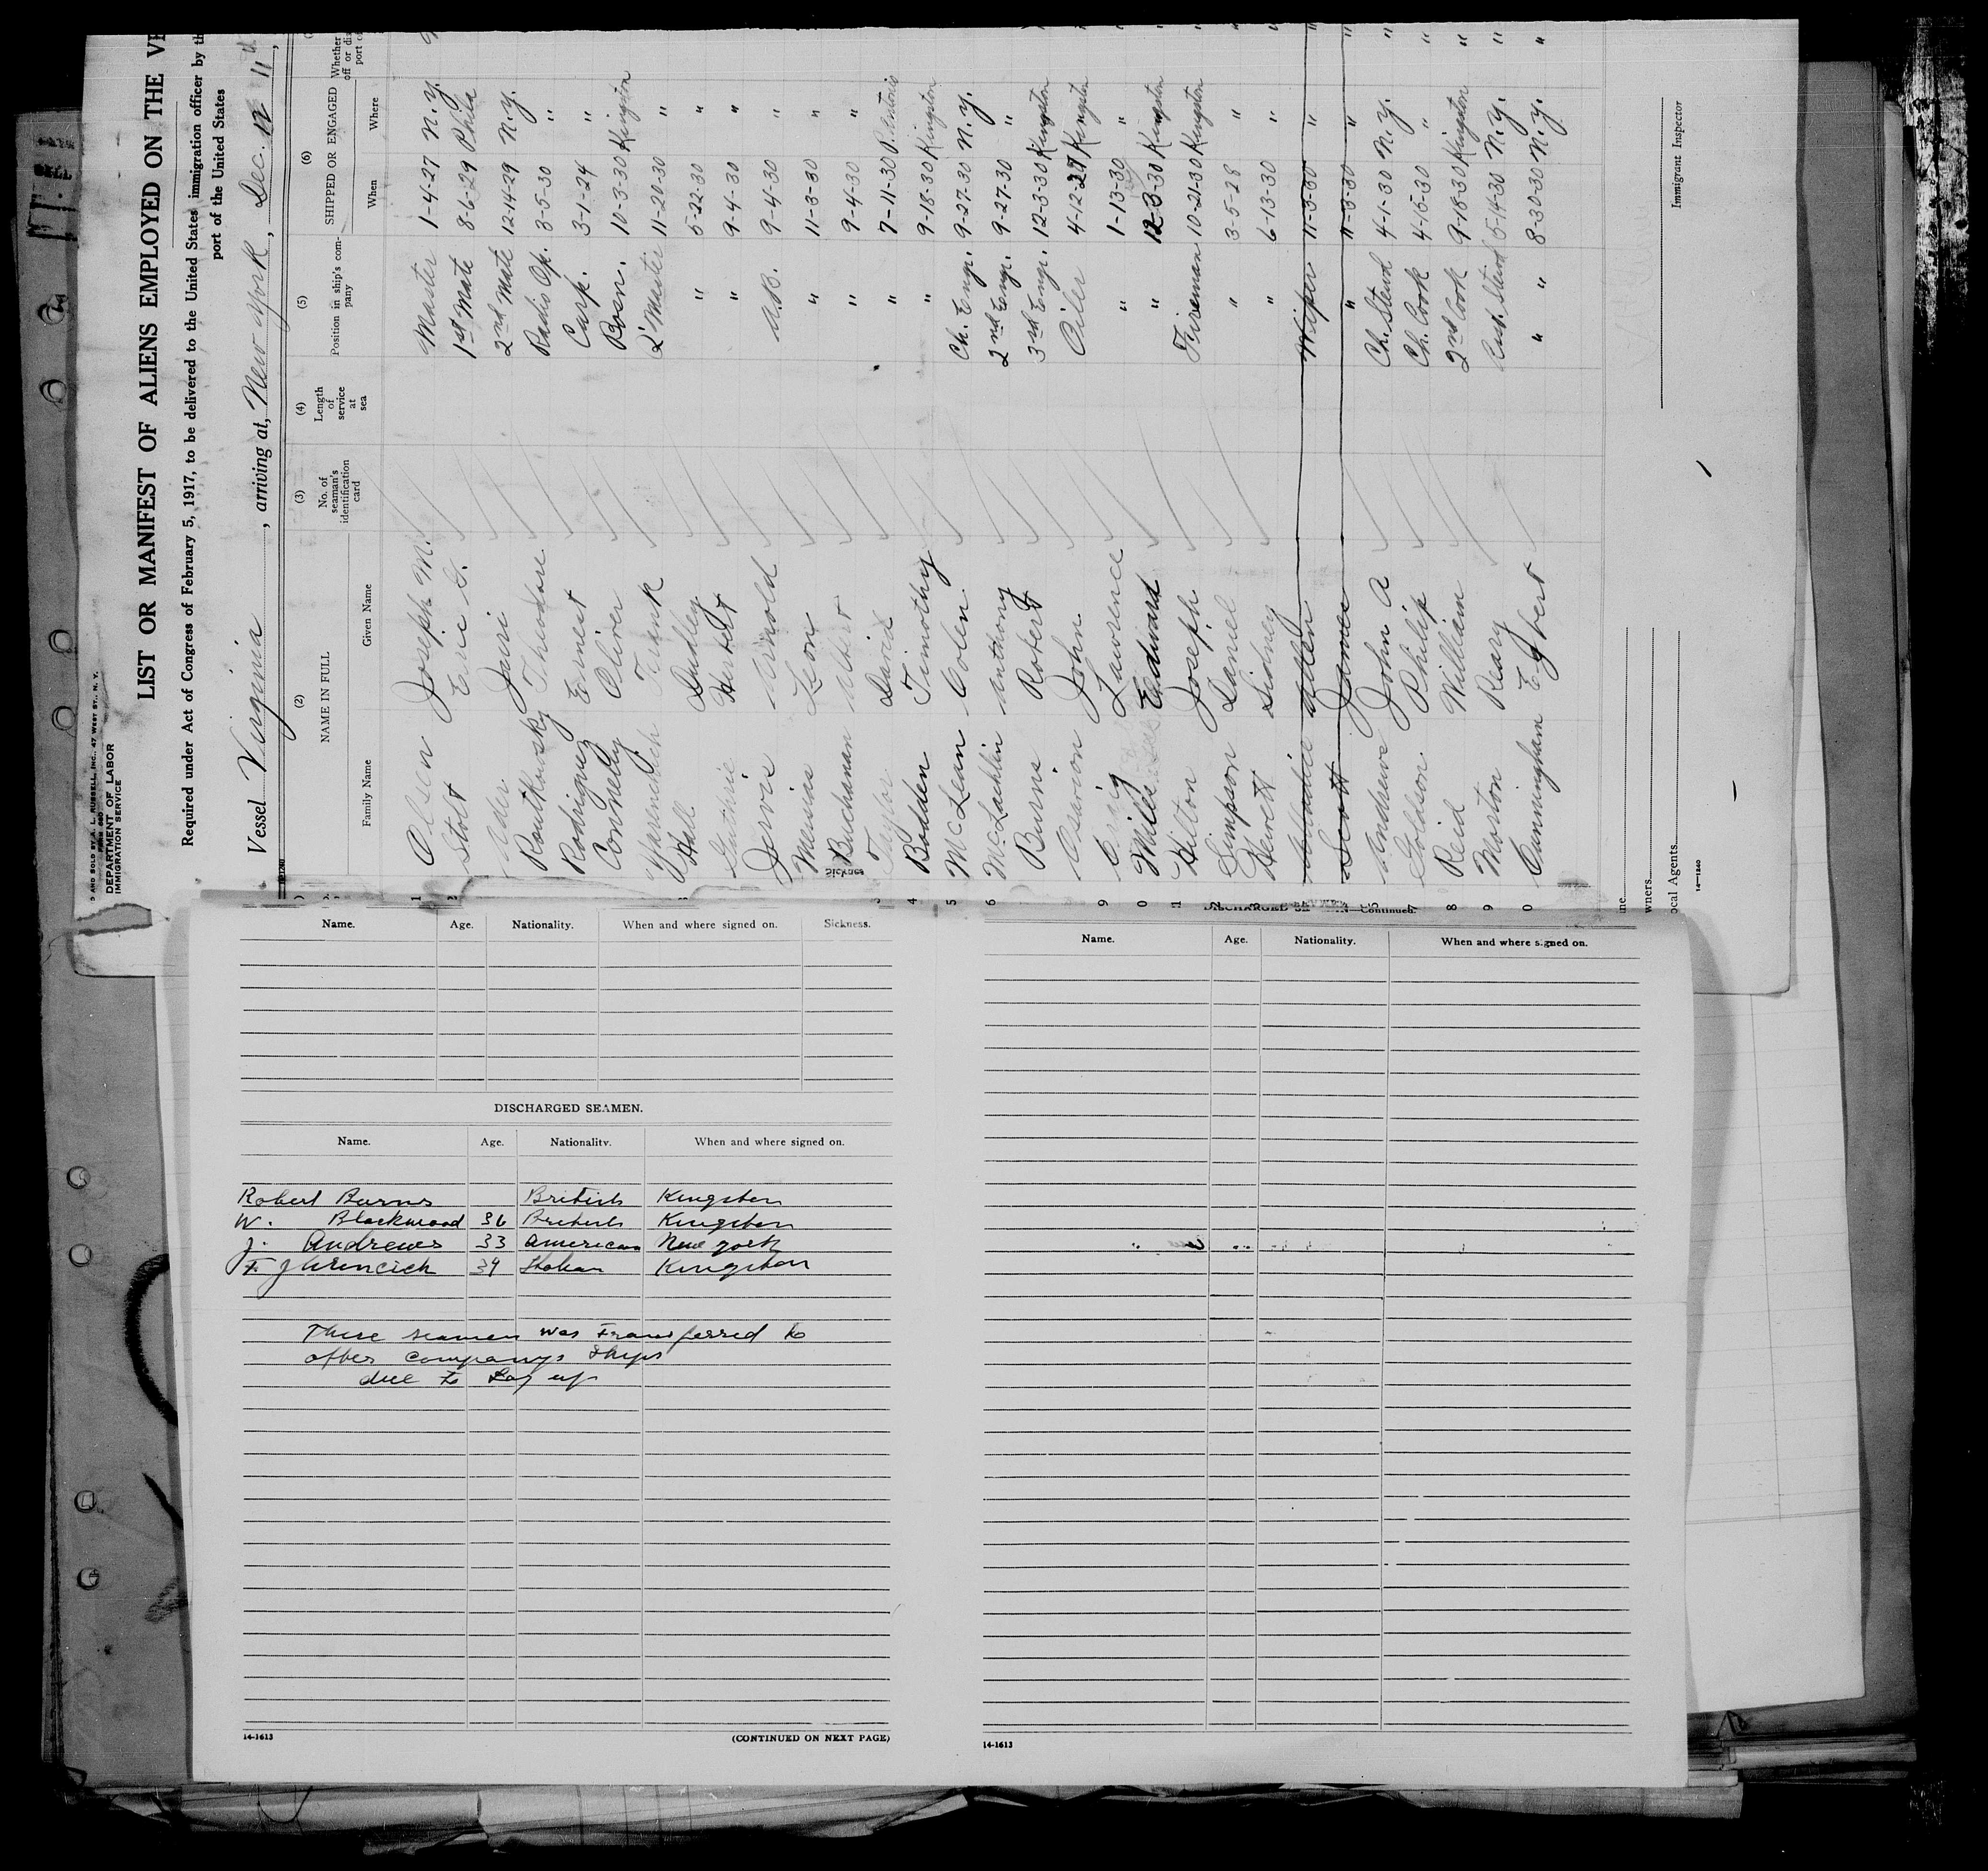 AND SOLD BY A. L. RUSSELL, INC., 47 WEST ST., N. Y.
DEPARTMENT OF LABOR
IMMIGRATION SERVICE
LIST OR MANIFEST OF ALIENS EMPLOYED ON THE VE
Required under Act of Congress of February 5, 1917, to be delivered to the United States immigration officer by th
port of the United States
Vessel Virginia , arriving at, New York , Dec. 11th
(2) (3) (4) (5) (6)
NAME IN FULL No. of seaman's identification card Length of service at sea Position in ship's company SHIPPED OR ENGAGED Whether
Family Name Given Name When Where
1 Olsen Joseph M. Master 1-4-27 N.Y.
Stolt Eric G. 1st Mate 8-6-29 Phila
Jauri 2nd Mate 12-14-29 N.Y.
Theodore Radio Op. 3-5-30 "
Rodriguez Ernest Carp. 3-1-24 "
Connelly Oliver Bosn. 10-3-30 Kingston
Frank Q'Master 11-20-30 "
Hall Dudley " 5-22-30 "
Guthrie Herbert " 9-4-30 "
Jervis Arnold A.B. 9-4-30 "
Leon " 11-3-30 "
Buchanan Albert " 9-4-30 "
3 Taylor David " 7-11-30
4 Bodden Timothy " 9-18-30 Kingston
5 McLean Colen Ch. Engr. 9-27-30 N.Y.
6 McLachlin Anthony 2nd Engr. 9-27-30 "
Burns Robert 3rd Engr. 12-3-30 Kingston
John Oiler 4-12-29 Kingston
9 Lawrence " 1-13-30 "
0 Mills Edward " 12-3-30 Kingston
1 Hilton Joseph Fireman 10-21-30 Kingston
2 Simpson Daniel " 3-5-28 "
3 Hewett Sidney " 6-13-30 "
Allen Wiper 11-3-30 "
4 Scott James " 11-3-30 "
5 Andrews John A Ch. Steward 4-1-30 N.Y.
7 Goldson Philip Ch. Cook 4-15-30 "
8 Reid William 2nd Cook 9-18-30 Kingston
9 Morton Reary Asst. Steward 5-14-30 N.Y.
0 Cunningham Egbert " " 8-30-30 N.Y.
wners
ocal Agents
14—1240
Immigrant Inspector
Name. Age. Nationality. When and where signed on. Sickness.
DISCHARGED SEAMEN.
Name. Age. Nationality. When and where signed on.
Robert Burns British Kingston
W. Blackwood 36 British Kingston
J. Andrews 33 American New York
34 Italian Kingston
These seamen was Transferred to
other companys Ships
due to Lay up
14-1613 (CONTINUED ON NEXT PAGE)
—Continued.
Name. Age. Nationality. When and where signed on.
14-1613